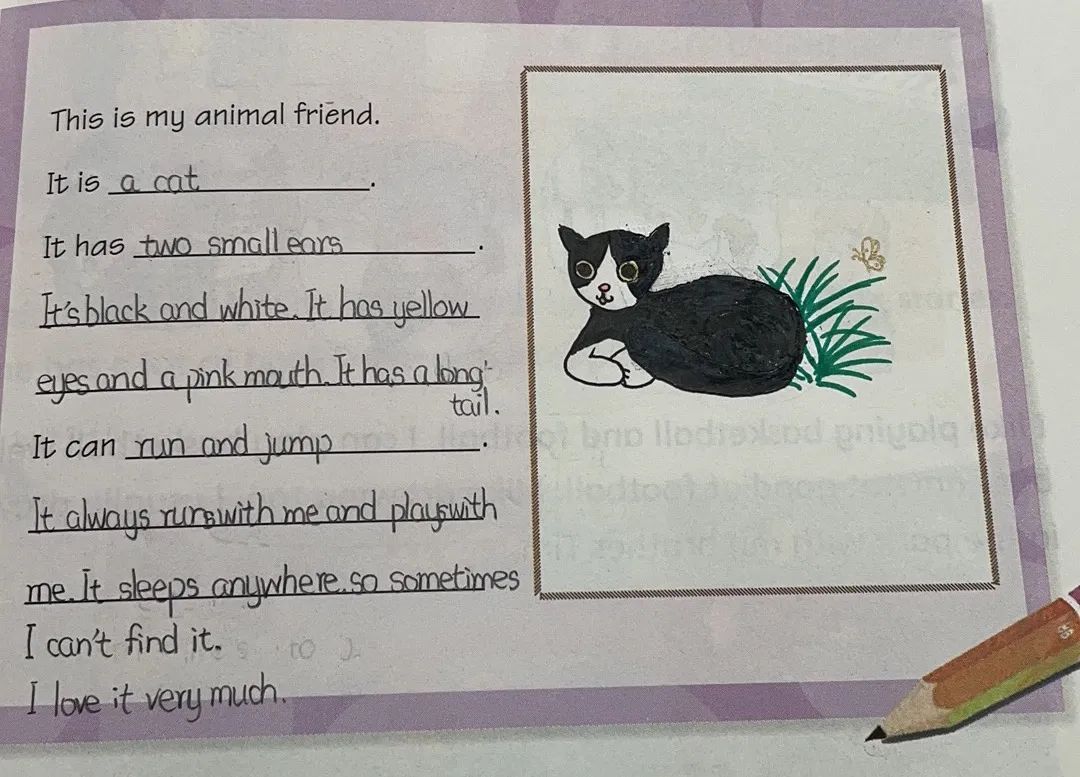 This is my animal friend.
It is a cat.
It has two small ears.
It's black and white. It has yellow
eyes and a pink mouth. It has a long
tail.
It can run and jump.
It always runs with me and plays with
me. It sleeps anywhere. so sometimes
I can't find it.
I love it very much.